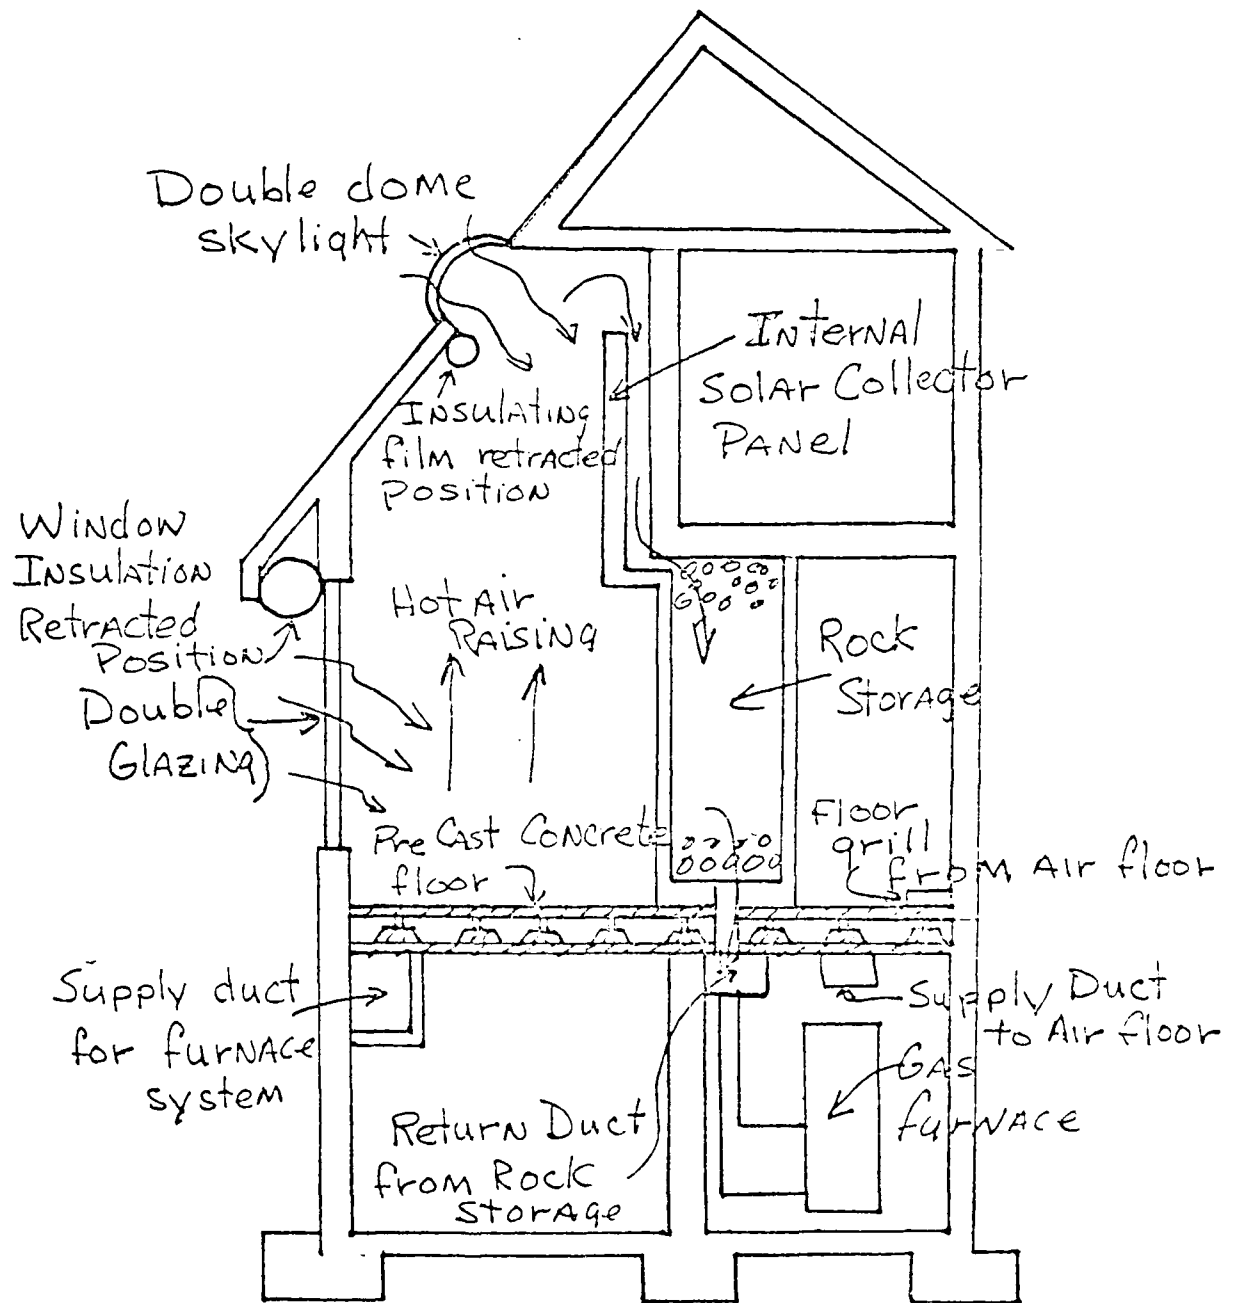 Double dome
skylight
Internal
Solar Collector
Panel
Insulating
film retracted
position
Window
Insulation
Retracted
Position
Hot Air
Raising
Rock
Storage
Double
Glazing
Pre Cast Concrete
floor
Floor
grill
from Air floor
Supply duct
for furnace
system
Supply Duct
to Air floor
Gas
furnace
Return Duct
from Rock
Storage